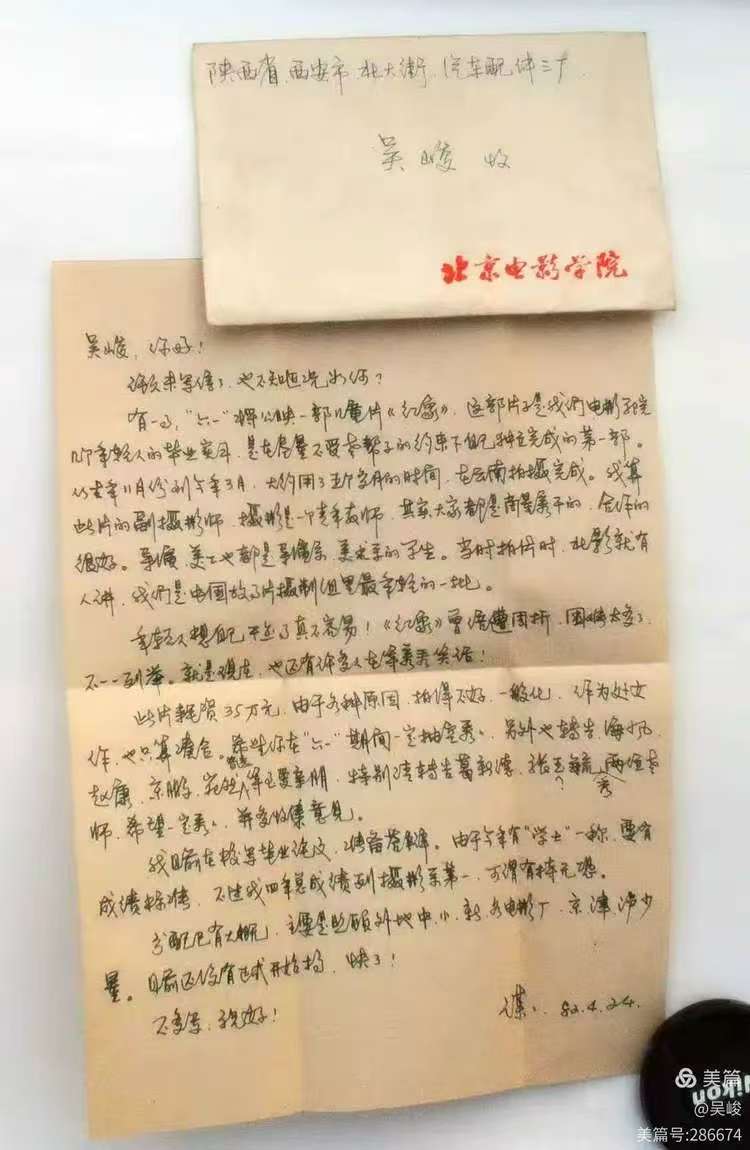 陕西省 西安市 北大街 汽车配件三厂
吴峻 收
北京电影学院
吴峻,你好!
许久未写信了,也不知近况如何?
有一事,“六一”将公映一部儿童片《红象》,这部片子是我们电影学院
几个年轻人的毕业实习,是在尽量不要老帮子的约束下自己独立完成的第一部。
从去年11月份到今年3月,大约用了五个月的时间,在云南拍摄完成。我算
此片的副摄影师,摄影是一个青年教师,其实大家都是商量来干的,合作的
很好。导演、美工也都是导演系、美术系的学生。当时拍片时,北影就有
人讲,我们是中国故事片摄制组里最年轻的一批。
年轻人想自己干点事真不容易!《红象》曾历遭周折,困难太多了,
不一一列举。就是现在,也还有许多人在等着看笑话!
此片耗资35万元,由于各种原因,拍得不好,一般化,作为处女
作,也只算凑合。希望你在“六一”期间一定抽空看看,另外也转告海风、
赵康、京鹏、等至爱亲朋,特别请转告葛新德、张 两位老
师,希望一定看看,并多收集意见。
我目前在校写毕业论文,准备答辩。由于今年有“学士”一称,要有
成绩标准,不过我四年总成绩列摄影系第一,可谓有恃无恐。
分配已有大概,主要是照顾外地中、小、新各电影厂,京津沪少
量。目前还没有正式开始搞,快了!
不多写,祝好!
谋 82.4.24.
Nikon
美篇
@吴峻
美篇号:286674